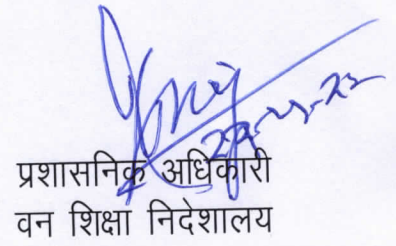 प्रशासनिक अधिकारी
वन शिक्षा निदेशालय